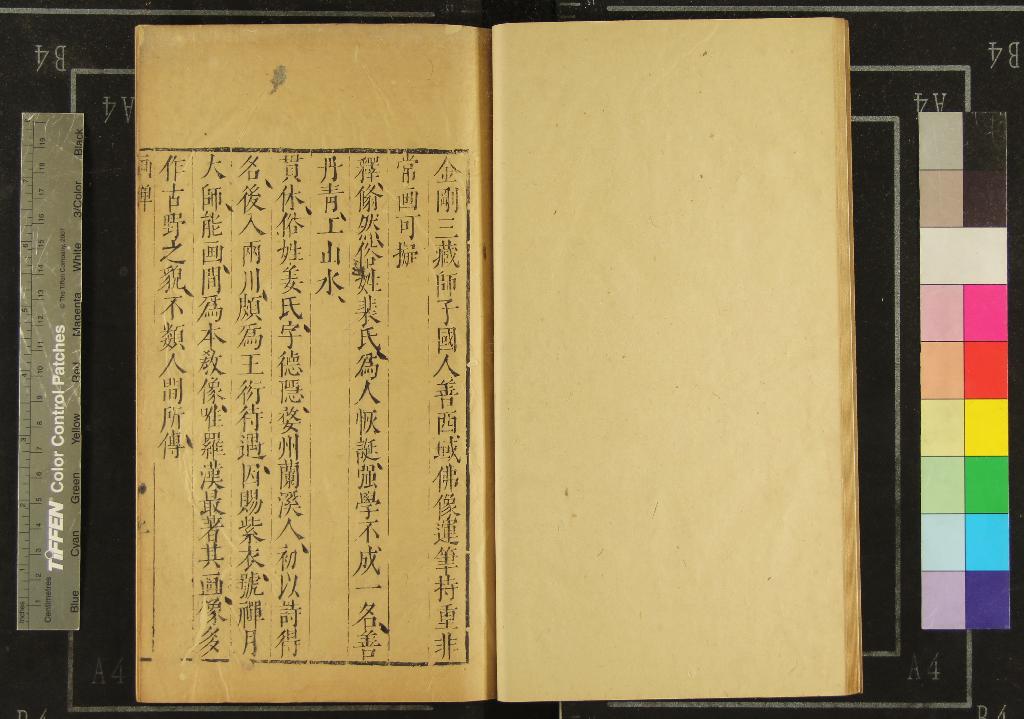 金剛三藏師子國人善西域佛像運筆持重非
常画可擬
釋翛然俗姓裴氏爲人恢誕强學不成一名善
丹青工山水、
貫休俗姓姜氏字德隱婺州蘭溪人初以詩得
名後入兩川頗爲王衍待遇因賜紫衣號禪月
大師能画間爲本教像唯羅漢最著其画像多
作古野之貌不類人間所傳
画禪
B4
A4
Inches
Centimetres
TIFFEN Color Control Patches
© The Tiffen Company, 2007
Blue
Cyan
Green
Yellow
Red
Magenta
White
3/Color
Black
B4
A4
A4
A4
B4